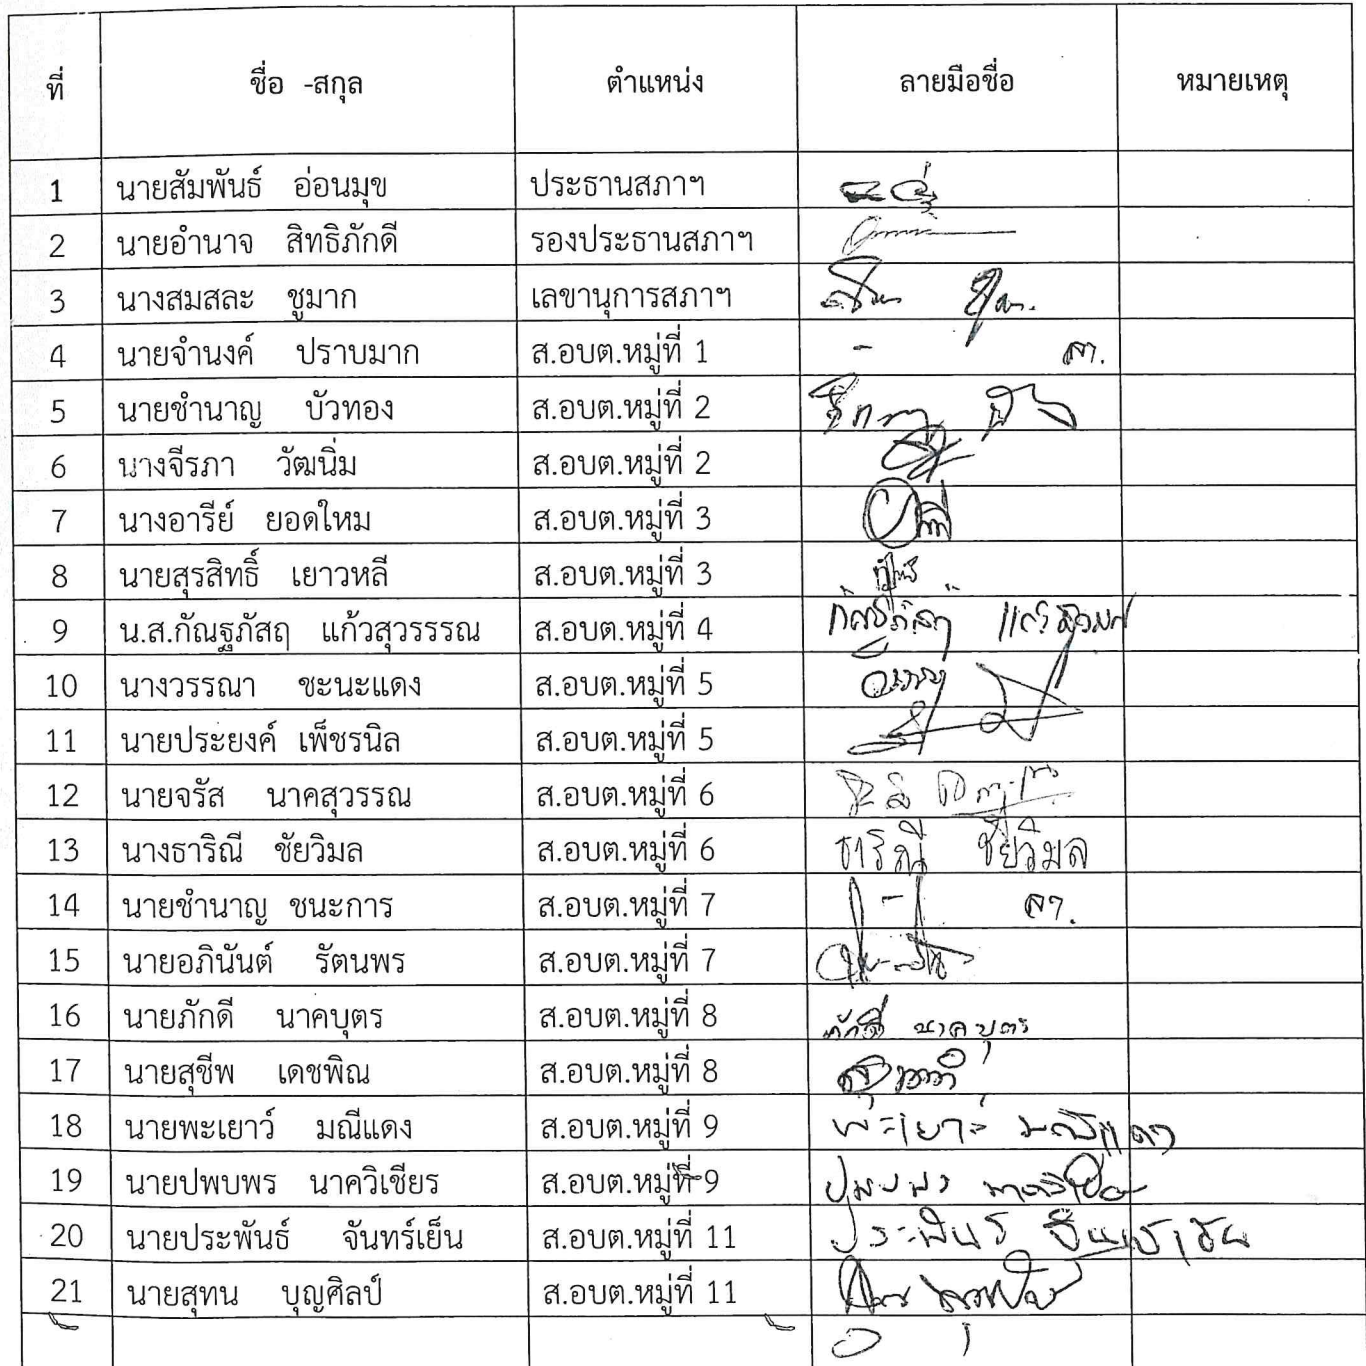 ที่ ชื่อ -สกุล ตำแหน่ง ลายมือชื่อ หมายเหตุ
1 นายสัมพันธ์ อ่อนมุข ประธานสภาฯ
2 นายอำนาจ สิทธิภักดี รองประธานสภาฯ
3 นางสมสละ ชูมาก เลขานุการสภาฯ
4 นายจำนงค์ ปราบมาก ส.อบต.หมู่ที่ 1 - ลา.
5 นายชำนาญ บัวทอง ส.อบต.หมู่ที่ 2
6 นางจีรภา วัฒนิ่ม ส.อบต.หมู่ที่ 2
7 นางอารีย์ ยอดใหม ส.อบต.หมู่ที่ 3
8 นายสุรสิทธิ์ เยาวหลี ส.อบต.หมู่ที่ 3
9 น.ส.กัณฐภัสฤ แก้วสุวรรรณ ส.อบต.หมู่ที่ 4
10 นางวรรณา ชะนะแดง ส.อบต.หมู่ที่ 5
11 นายประยงค์ เพ็ชรนิล ส.อบต.หมู่ที่ 5
12 นายจรัส นาคสุวรรณ ส.อบต.หมู่ที่ 6
13 นางธาริณี ชัยวิมล ส.อบต.หมู่ที่ 6 ธาริณี ชัยวิมล
14 นายชำนาญ ชนะการ ส.อบต.หมู่ที่ 7 - ลา.
15 นายอภินันต์ รัตนพร ส.อบต.หมู่ที่ 7
16 นายภักดี นาคบุตร ส.อบต.หมู่ที่ 8 ภักดี นาคบุตร
17 นายสุชีพ เดชพิณ ส.อบต.หมู่ที่ 8
18 นายพะเยาว์ มณีแดง ส.อบต.หมู่ที่ 9 พะเยาว์ มณีแดง
19 นายปพบพร นาควิเชียร ส.อบต.หมู่ที่ 9
20 นายประพันธ์ จันทร์เย็น ส.อบต.หมู่ที่ 11
21 นายสุทน บุญศิลป์ ส.อบต.หมู่ที่ 11